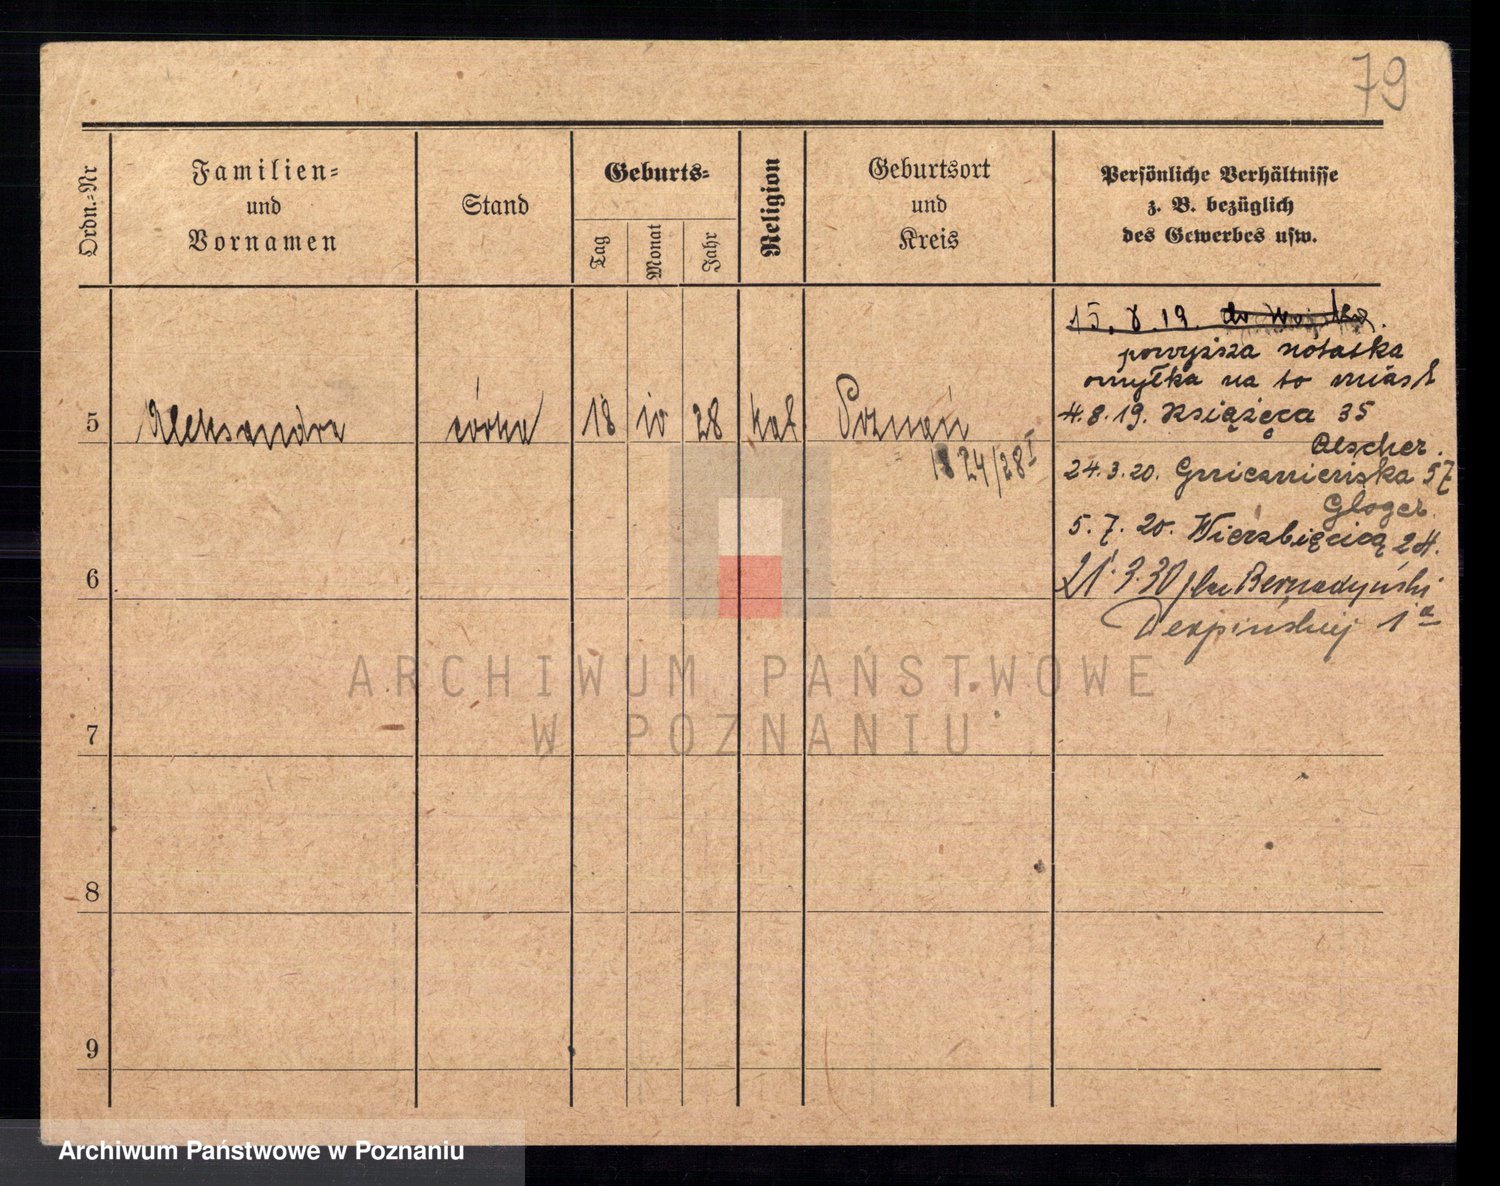 79
Ordn.-Nr
Familien-
und
Vornamen
Stand
Geburts-
Tag
Monat
Jahr
Religion
Geburtsort
und
Kreis
Persönliche Verhältnisse
z. B. bezüglich
des Gewerbes usw.
15. 8. 19. do wojska.
powyższa notatka
omyłka na to miast
5 Aleksandra córka 18 IV 28 kat Poznań
4.8.19. Książęca 35
Alscher.
1824/28 I
24.3.20. Gnieźnieńska 57
Gloger.
5.7.20. Wierzbięcica 24.
6
21.3.30 plac Bernadyński
1a
ARCHIWUM PAŃSTWOWE
W POZNANIU
7
8
9
Archiwum Państwowe w Poznaniu